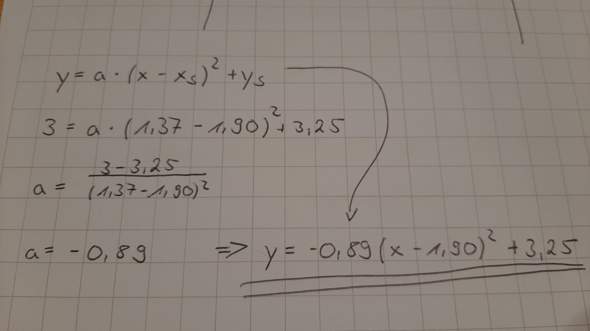 y = a · (x - x_s)² + y_s
3 = a · (1,37 - 1,90)² + 3,25
a = (3 - 3,25) / (1,37 - 1,90)²
a = -0,89 ⇒ y = -0,89 (x - 1,90)² + 3,25